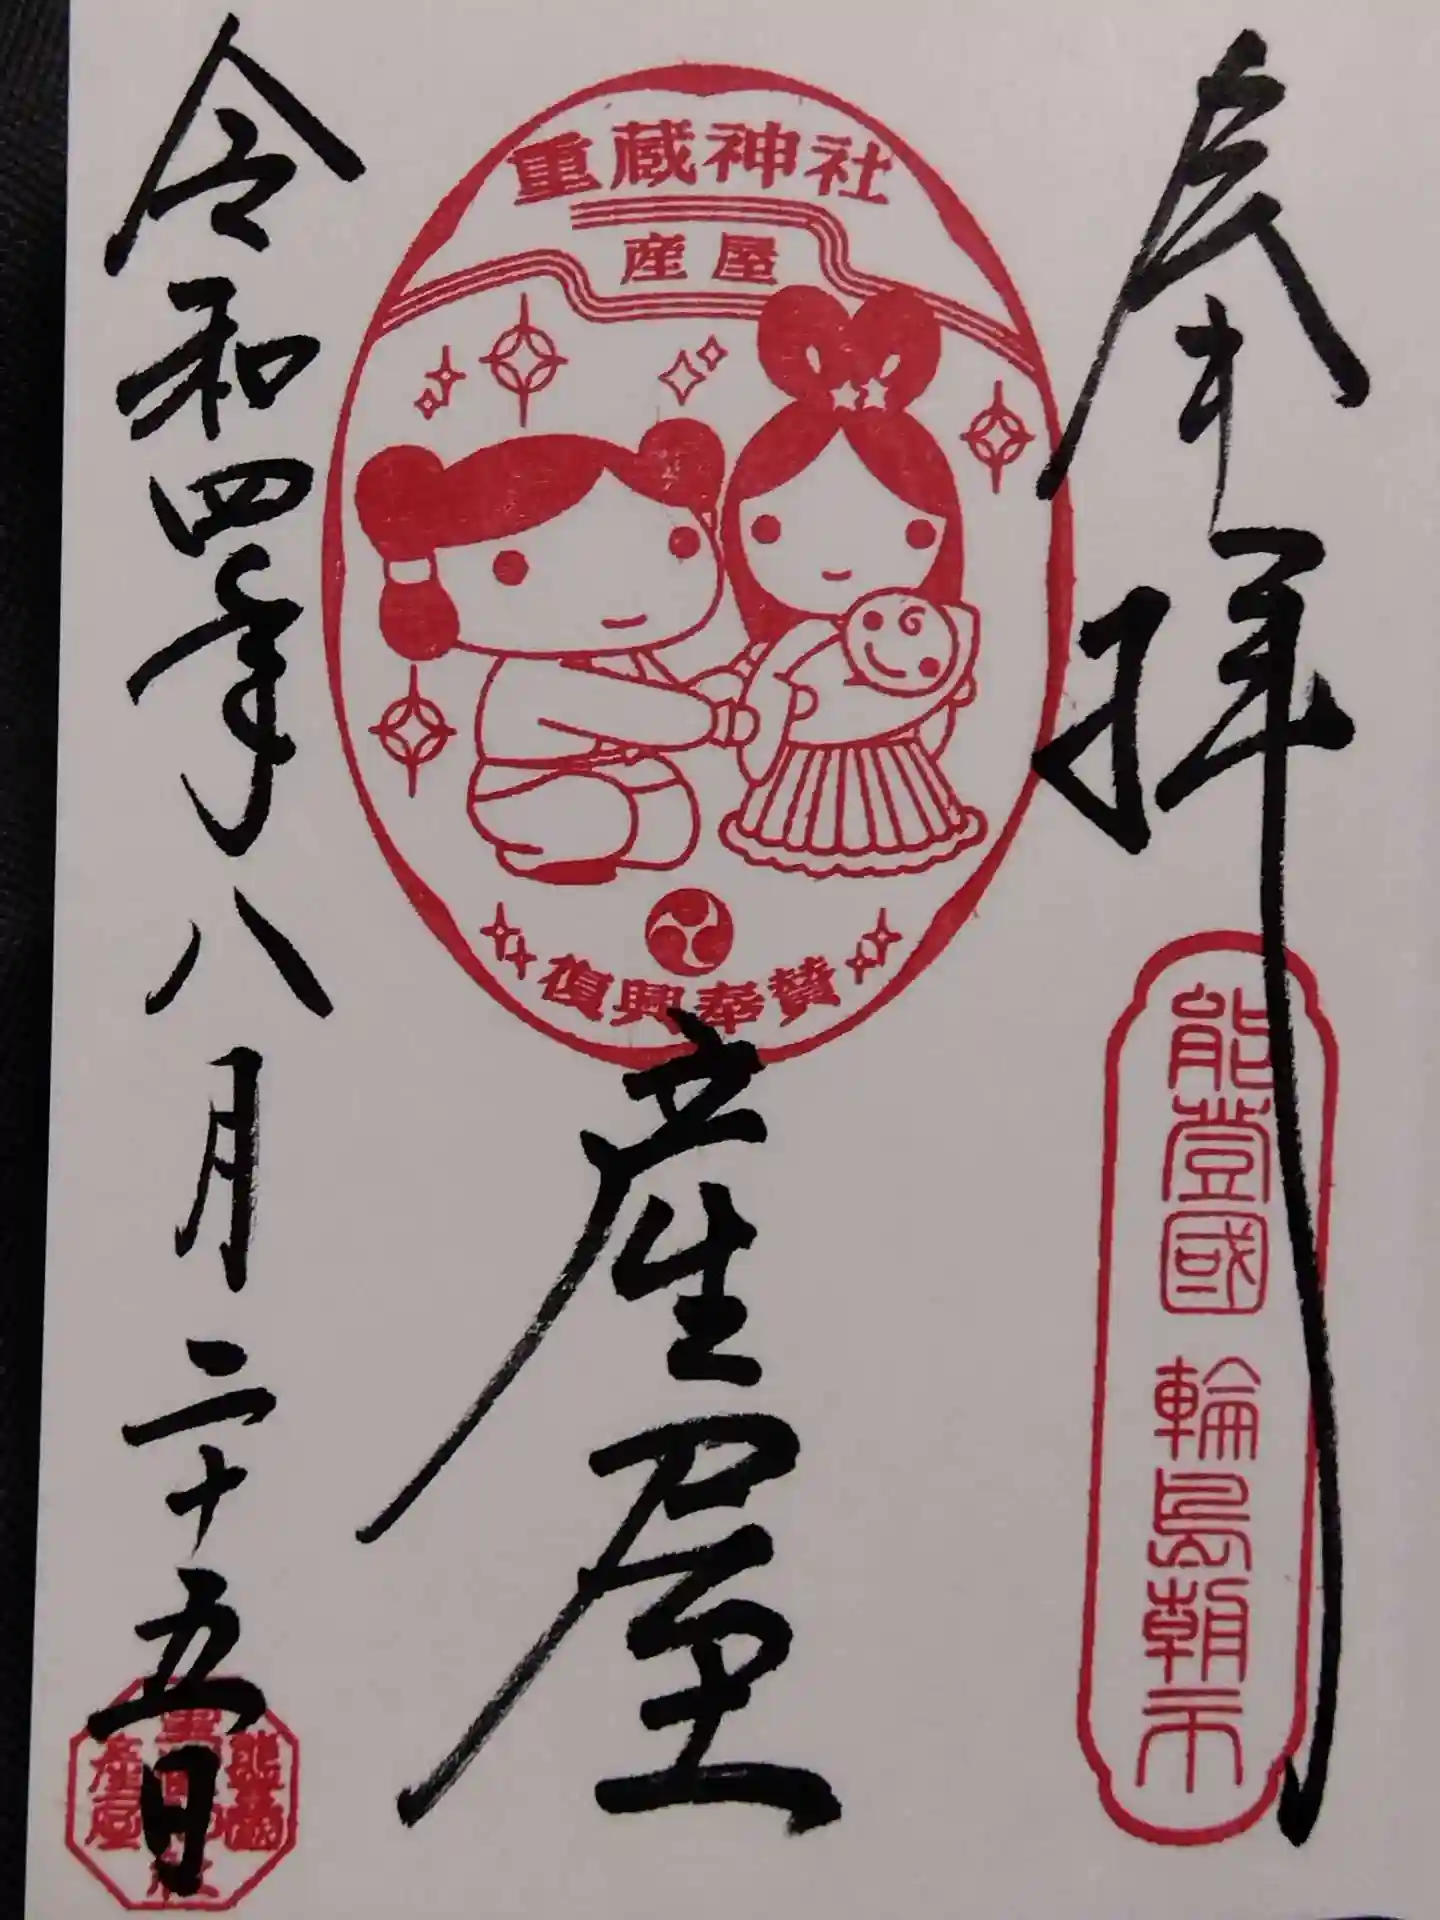 奉拝
能登國 輪島朝市
重蔵神社
産屋
復興奉賛
産屋
令和四年八月二十五日
産屋